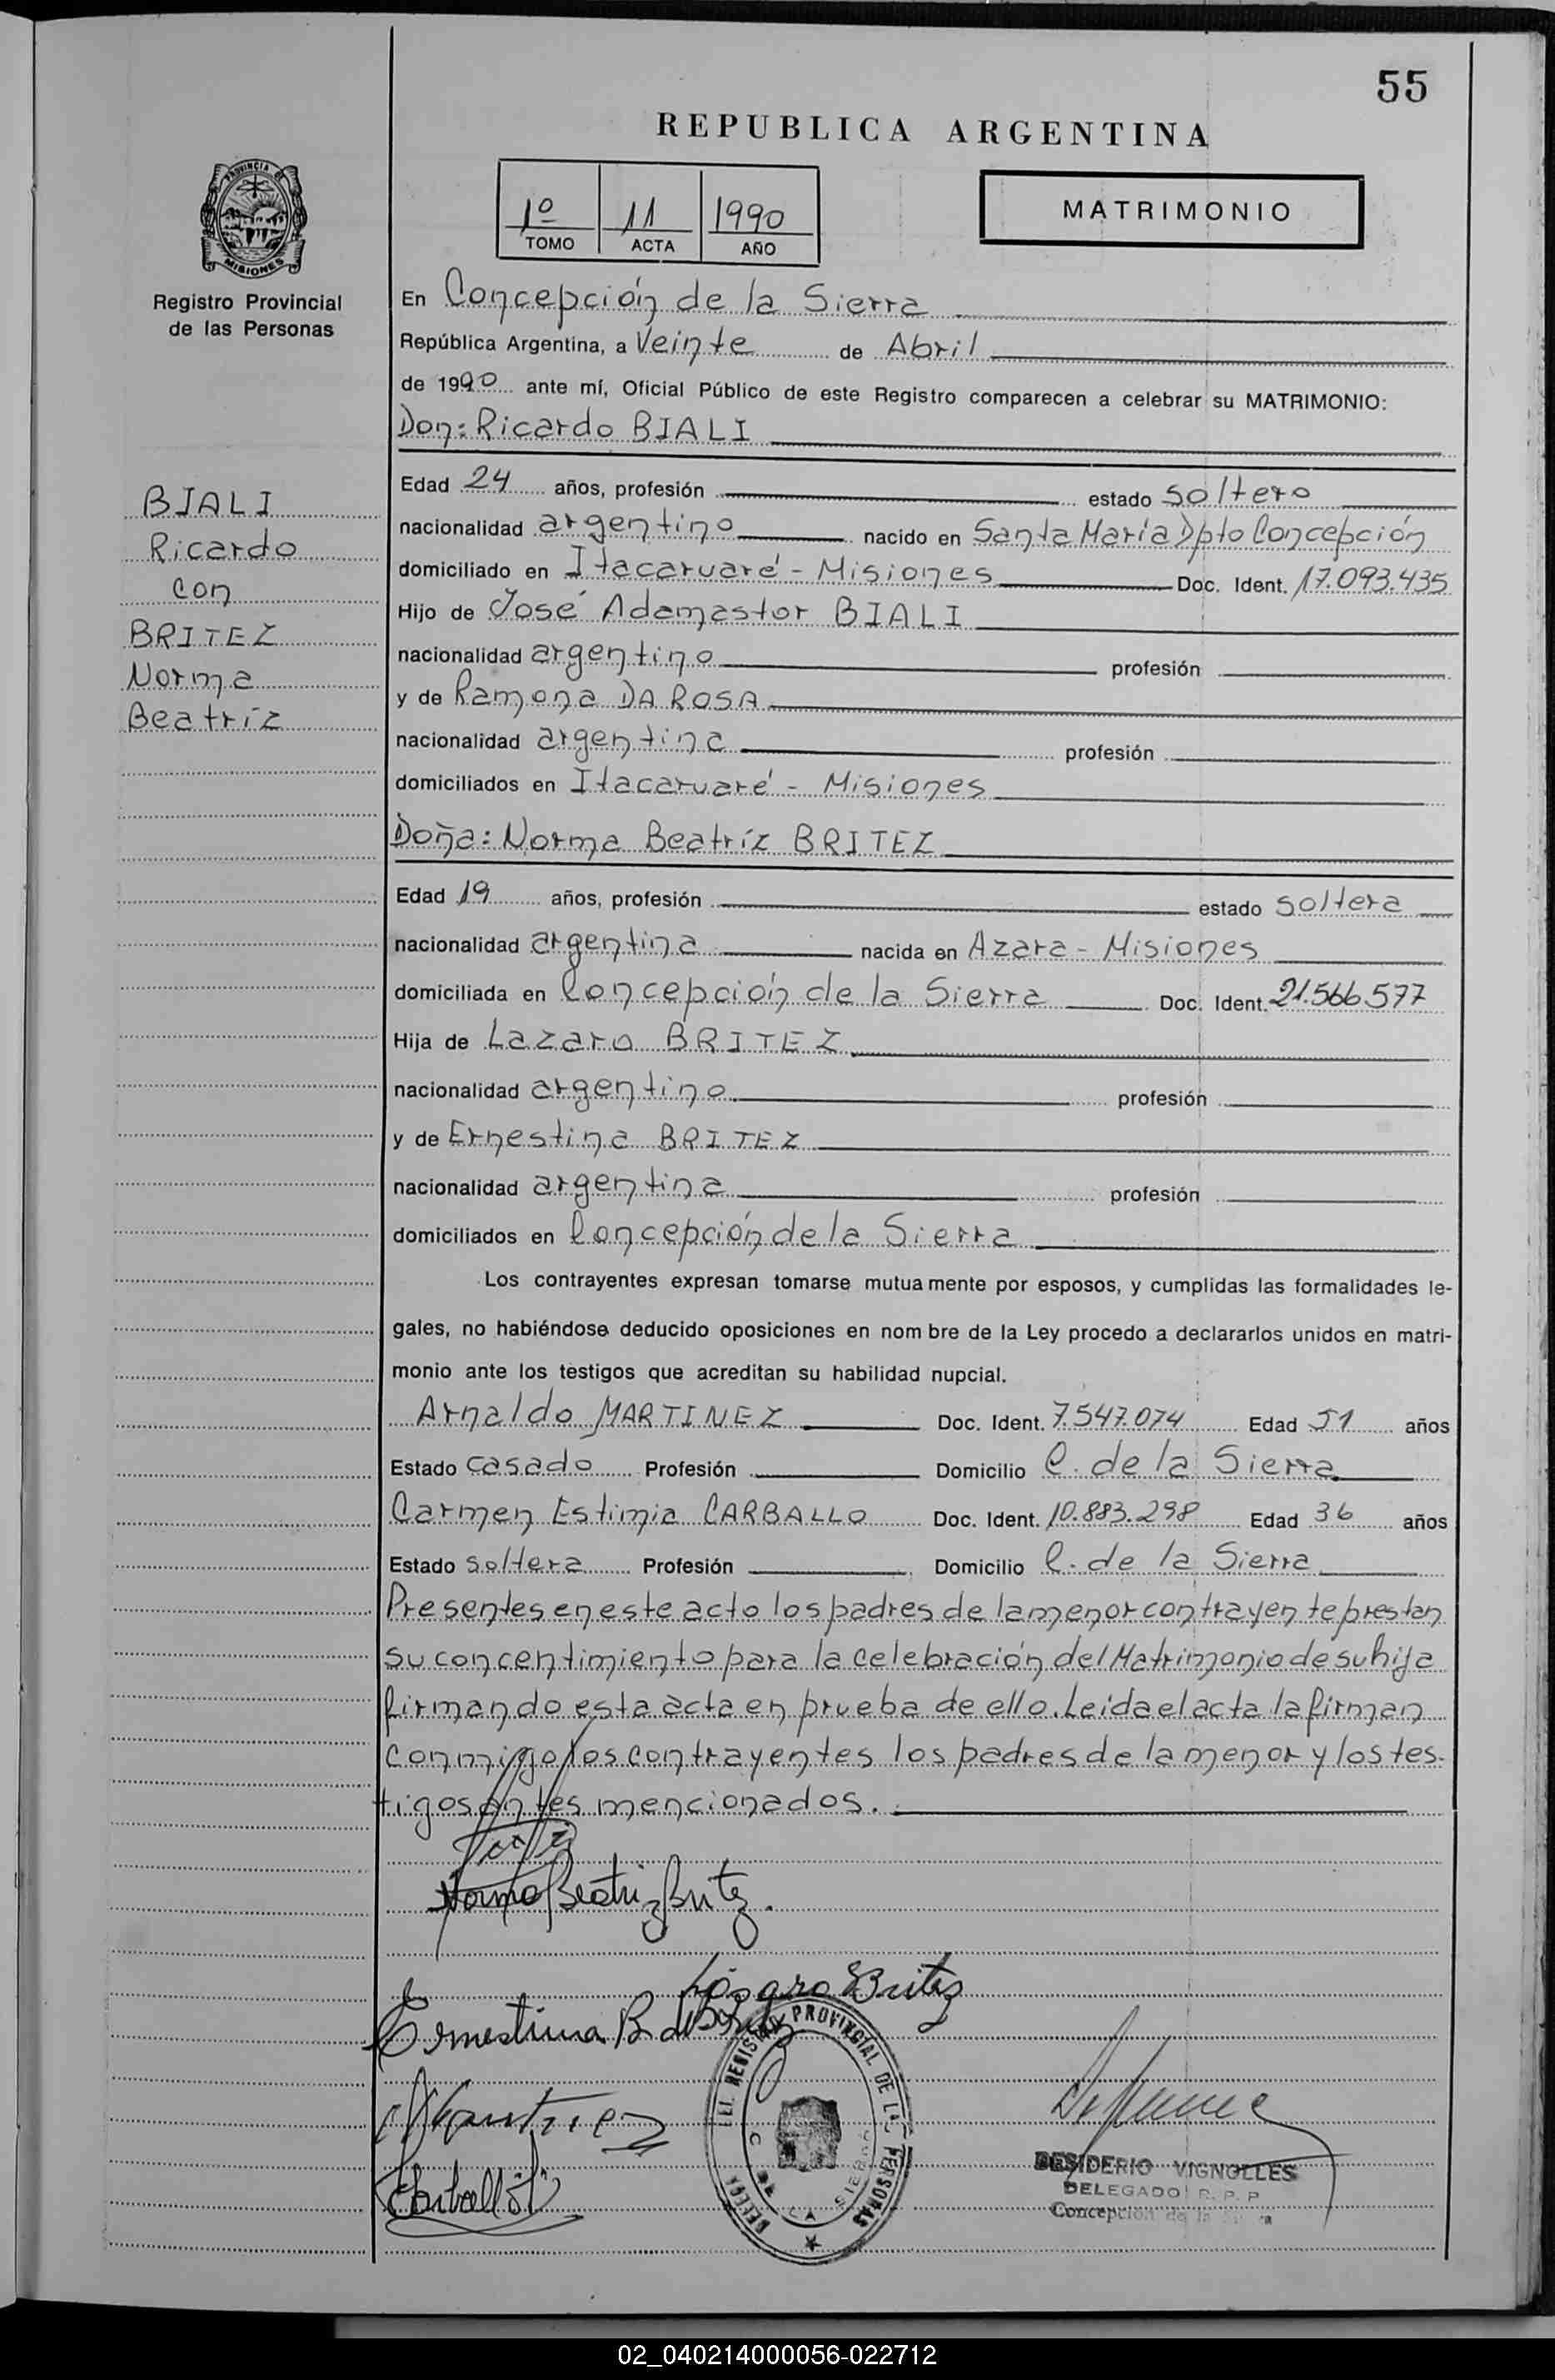 55
REPUBLICA ARGENTINA
1º 11 1990
TOMO ACTA AÑO
MATRIMONIO
PROVINCIA DE
MISIONES
Registro Provincial
de las Personas
BIALI
Ricardo
con
BRITEZ
Norma
Beatríz
En Concepción de la Sierra
República Argentina, a Veinte de Abril
de 1990 ante mí, Oficial Público de este Registro comparecen a celebrar su MATRIMONIO:
Don: Ricardo BIALI
Edad 24 años, profesión estado soltero
nacionalidad argentino nacido en Santa María Dpto Concepción
domiciliado en Itacaruaré - Misiones Doc. Ident. 17.093.435
Hijo de José Adamastor BIALI
nacionalidad argentino profesión
y de Ramona DA ROSA
nacionalidad argentina profesión
domiciliados en Itacaruaré - Misiones
Doña: Norma Beatríz BRITEZ
Edad 19 años, profesión estado soltera
nacionalidad argentina nacida en Azara - Misiones
domiciliada en Concepción de la Sierra Doc. Ident. 21.566.577
Hija de Lazaro BRITEZ
nacionalidad argentino profesión
y de Ernestina BRITEZ
nacionalidad argentina profesión
domiciliados en Concepción de la Sierra
Los contrayentes expresan tomarse mutuamente por esposos, y cumplidas las formalidades le-
gales, no habiéndose deducido oposiciones en nombre de la Ley procedo a declararlos unidos en matri-
monio ante los testigos que acreditan su habilidad nupcial.
Arnaldo MARTINEZ Doc. Ident. 7.547.074 Edad 51 años
Estado casado Profesión Domicilio C. de la Sierra
Carmen Estimia CARBALLO Doc. Ident. 10.883.298 Edad 36 años
Estado soltera Profesión Domicilio C. de la Sierra
Presentes en este acto los padres de la menor contrayente prestan
su concentimiento para la celebración del Matrimonio de su hija
firmando esta acta en prueba de ello. Leida el acta la firman
conmigo los contrayentes los padres de la menor y los tes-
tigos antes mencionados.
Norma Beatriz Britez.
Lázaro Britez
Ernestina B. de Britez
REGISTRO PROVINCIAL DE LAS PERSONAS
DESIDERIO VIGNOLLES
DELEGADO R. P. P
Concepción de la Sierra
02_040214000056-022712